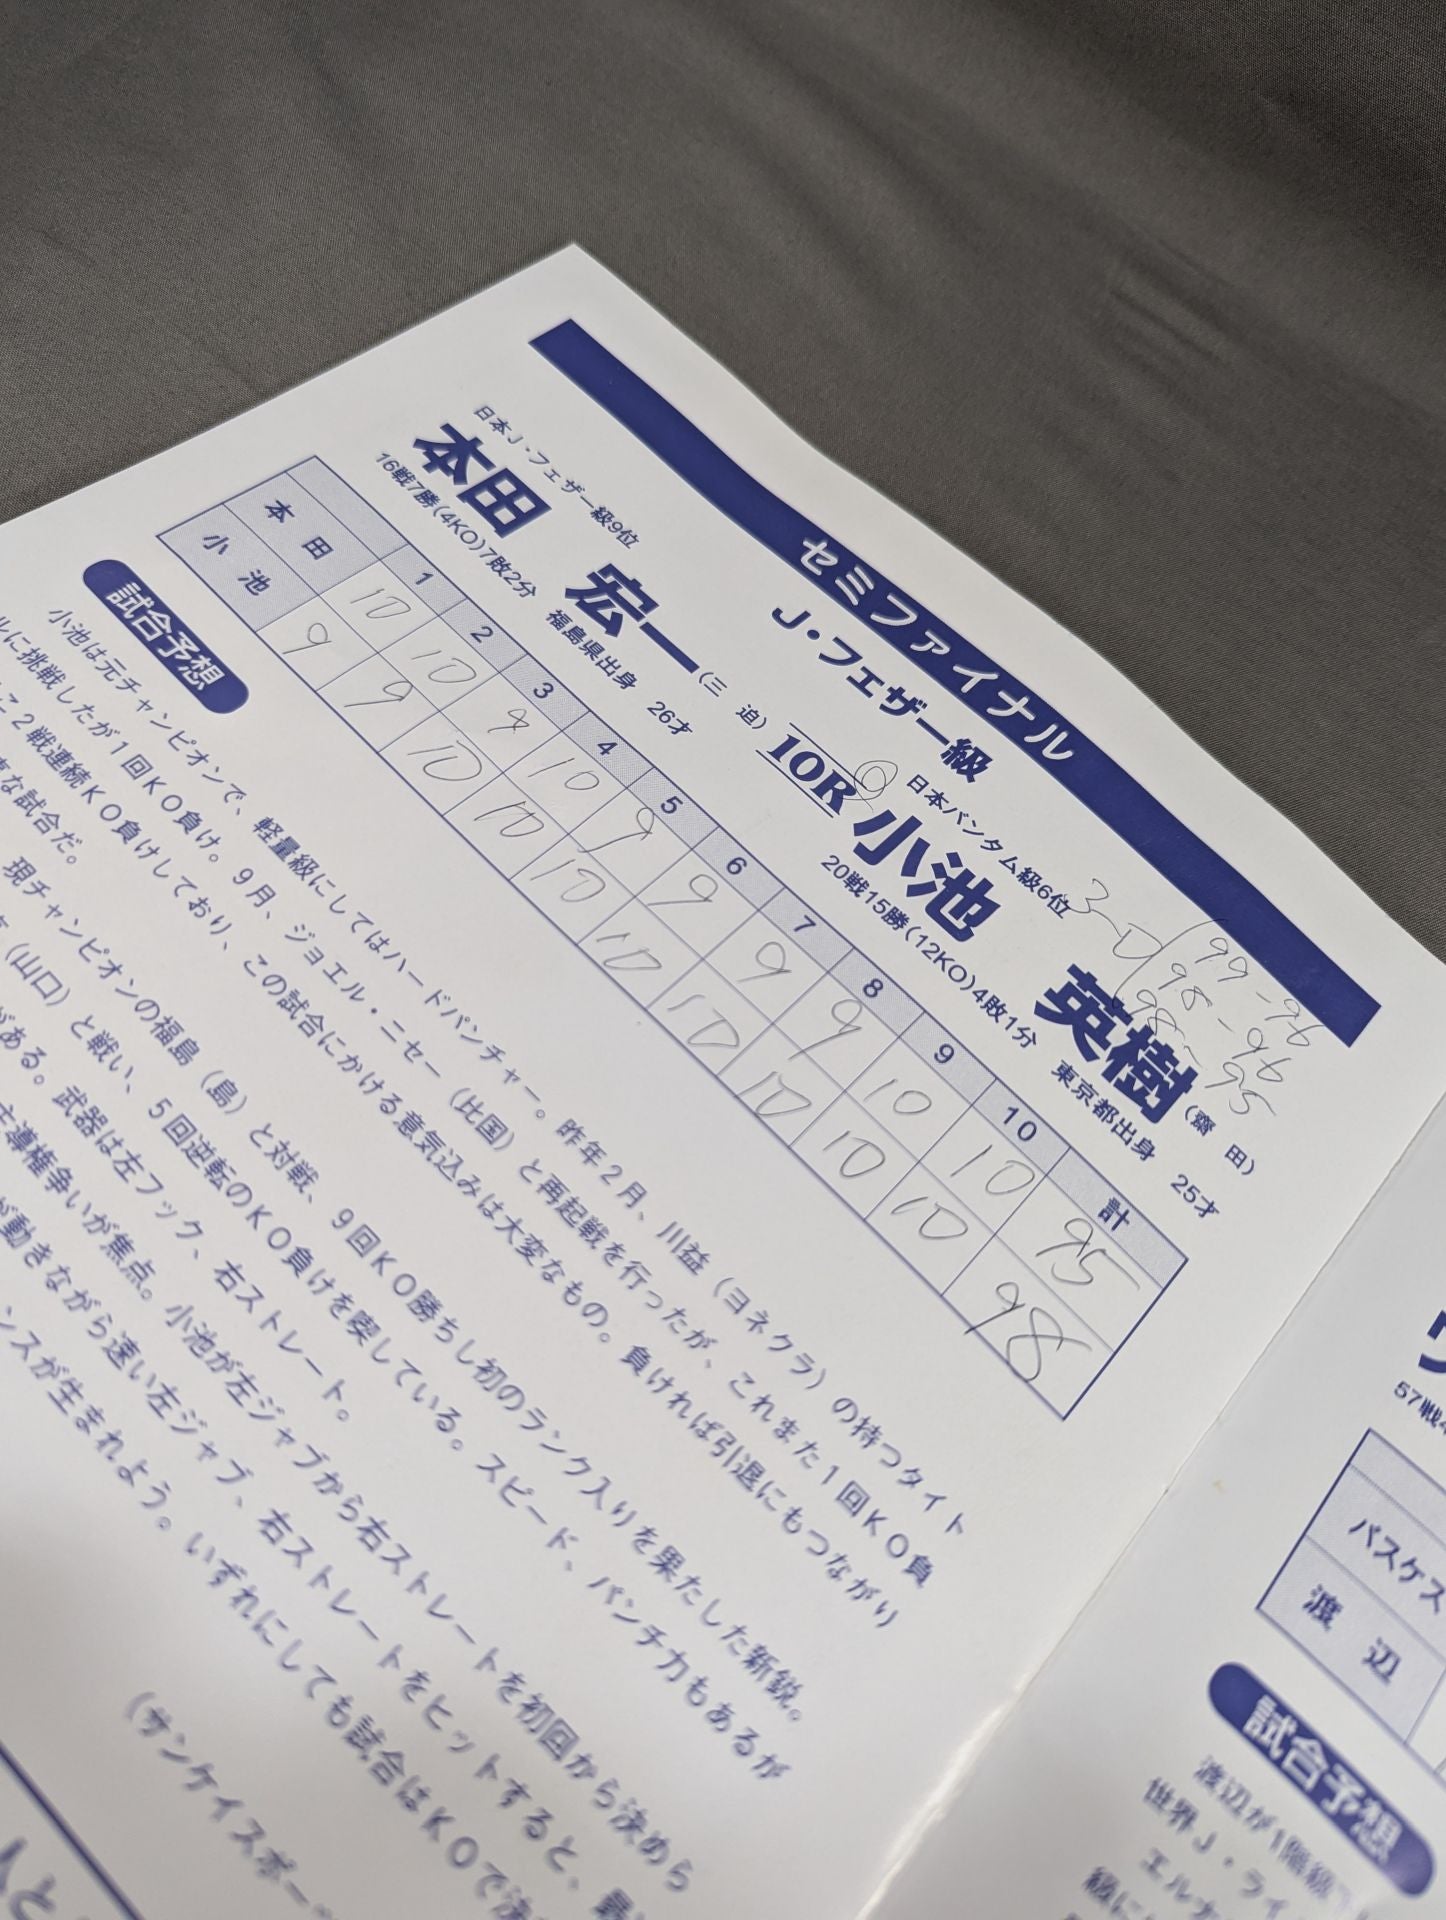 セミファイナル
J・フェザー級
日本J・フェザー級9位
本田 宏一(三 迫)
16戦7勝(4KO)7敗2分 福島県出身 26才
10R
日本バンタム級6位
小池 英樹(齋 田)
20戦15勝(12KO)4敗1分 東京都出身 25才
3-0
99-96
98-96
98-95
1 2 3 4 5 6 7 8 9 10 計
本田 10 10 9 10 9 9 9 9 10 10 95
小池 9 9 10 10 10 10 10 10 10 10 98
試合予想
小池は元チャンピオンで、軽量級にしてはハードパンチャー。昨年2月、川益(ヨネクラ)の持つタイト
ルに挑戦したが1回KO負け。9月、ジョエル・ニセー(比国)と再起戦を行ったが、これまた1回KO負
2戦連続KO負けしており、この試合にかける意気込みは大変なもの。負ければ引退にもつながり
な試合だ。
現チャンピオンの福島(島)と対戦、9回KO勝ちし初のランク入りを果たした新鋭。
(山口)と戦い、5回逆転のKO負けを喫している。スピード、パンチ力もあるが
がある。武器は左フック、右ストレート。
主導権争いが焦点。小池が左ジャブから右ストレートを初回から決めら
が動きながら速い左ジャブ、右ストレートをヒットすると、
ンスが生まれよう。いずれにしても試合はKOで決
(サンケイスポー
人と
57戦
バスケス
渡 辺
試合予想
渡辺が1階級
世界J・ライ
エル
級に